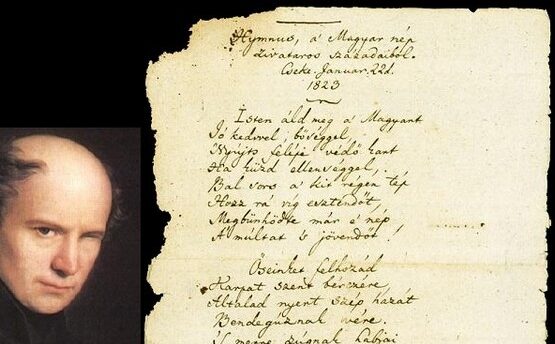 Hymnus, a' Magyar nép
zivataros századaiból.
Cseke. Januar. 22d.
1823
Isten áld meg a' Magyart
Jó kedvvel, bőséggel,
Nyújts feléje védő kart
Ha küzd ellenséggel,
Bal sors a' kit régen tép
Hozz rá víg esztendőt,
Megbünhödte már e' nép
A' múltat 's jövendőt!
Őseinket felhozád
Kárpát szent bérczére,
Általad nyert szép hazát
Bendegúznak vére.
'S merre zúgnak habjai